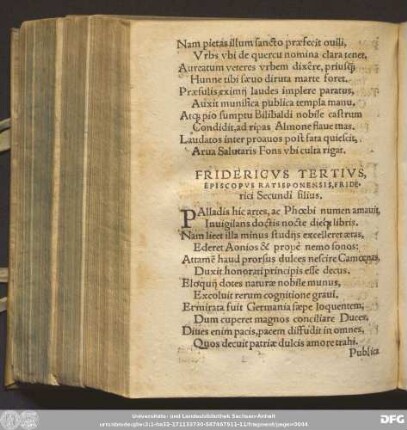 Nam pietas illum sancto præfecit ouili,
Vrbs vbi de quercu nomina clara tenet,
Aureatum veteres vrbem dixêre, priusq́
Hunne tibi sæuo diruta marte foret.
Præsulis eximij laudes implere paratus,
Auxit munifica publica templa manu,
Atq; pio sumptu Bilibaldi nobile castrum
Condidit, ad ripas Almone flaue tuas.
Laudatos inter proauos post fata quiescit,
Arua Salutaris Fons vbi culta rigat.
FRIDERICVS TERTIVS,
EPISCOPVS RATISPONENSIS, FRIDE-
rici Secundi filius.
PAlladis hic artes, ac Phœbi numen amauit,
Inuigilans doctis nocte dieq́; libris.
Nam licet illa minus studijs excelleret ætas,
Ederet Aonios & propè nemo sonos:
Attamẽ haud prorsus dulces nescire Camœnas,
Duxit honorati principis esse decus.
Eloquij dotes naturæ nobile munus,
Excoluit rerum cognitione graui.
Et mirata fuit Germania sæpe loquentem,
Dum cuperet magnos conciliare Duces,
Diues enim pacis, pacem diffudit in omnes,
Quos decuit patriæ dulcis amore trahi.
Publica
Universitäts- und Landesbibliothek Sachsen-Anhalt
DFG